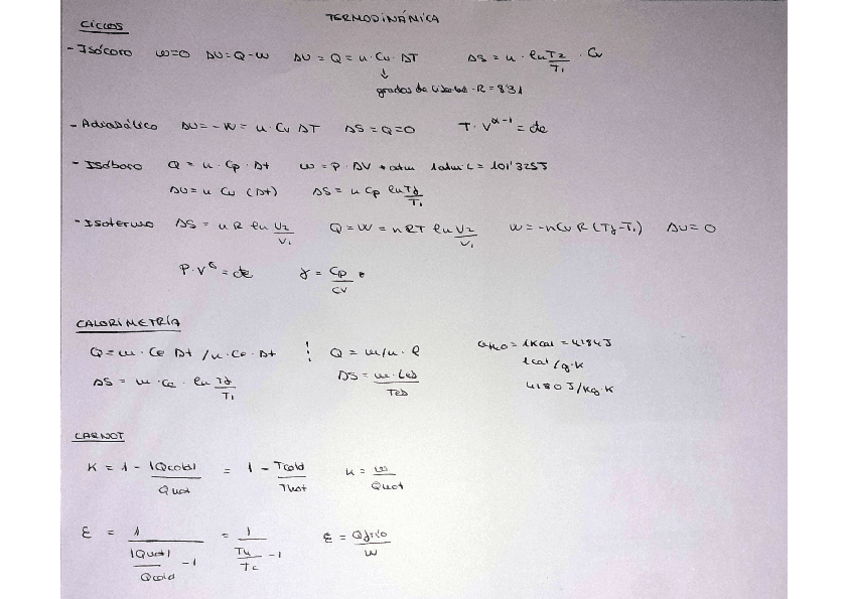 TERMODINÁMICA
Ciclos
- Isócoro W=0 ΔU=Q-W ΔU = Q = n·Cv·ΔT ΔS = n · ln T2/T1 · Cv
↓
grados de libertad · R = 8'31
- Adiabático ΔU=-W = n·Cv ΔT ΔS=Q=0 T·V^(γ-1) = cte
- Isóbaro Q = n·Cp·Δt W=P·ΔV → atm 1atm·L = 101'325J
ΔU= n Cv (Δt) ΔS = n Cp ln Tf/T1
- Isotermo ΔS = n R ln V2/V1 Q=W=nRT ln V2/V1 W=-nCv R (Tf-T1) ΔU=0
P·V^γ = cte γ = Cp/Cv
CALORIMETRÍA
Q=m·Ce Δt /n·Ce·Δt Q = m/n · l CH2O = 1Kcal = 4184J
1cal/g·K
ΔS = m·Ce· ln Tf/T1 ΔS = m·Leb/Teb 4180 J/Kg·K
CARNOT
K = 1 - |Qcold|/Qhot = 1 - Tcold/Thot K = W/Qhot
ε = 1/(|Qhot|/Qcold - 1) = 1/(TH/Tc - 1) ε = Qfrío/W